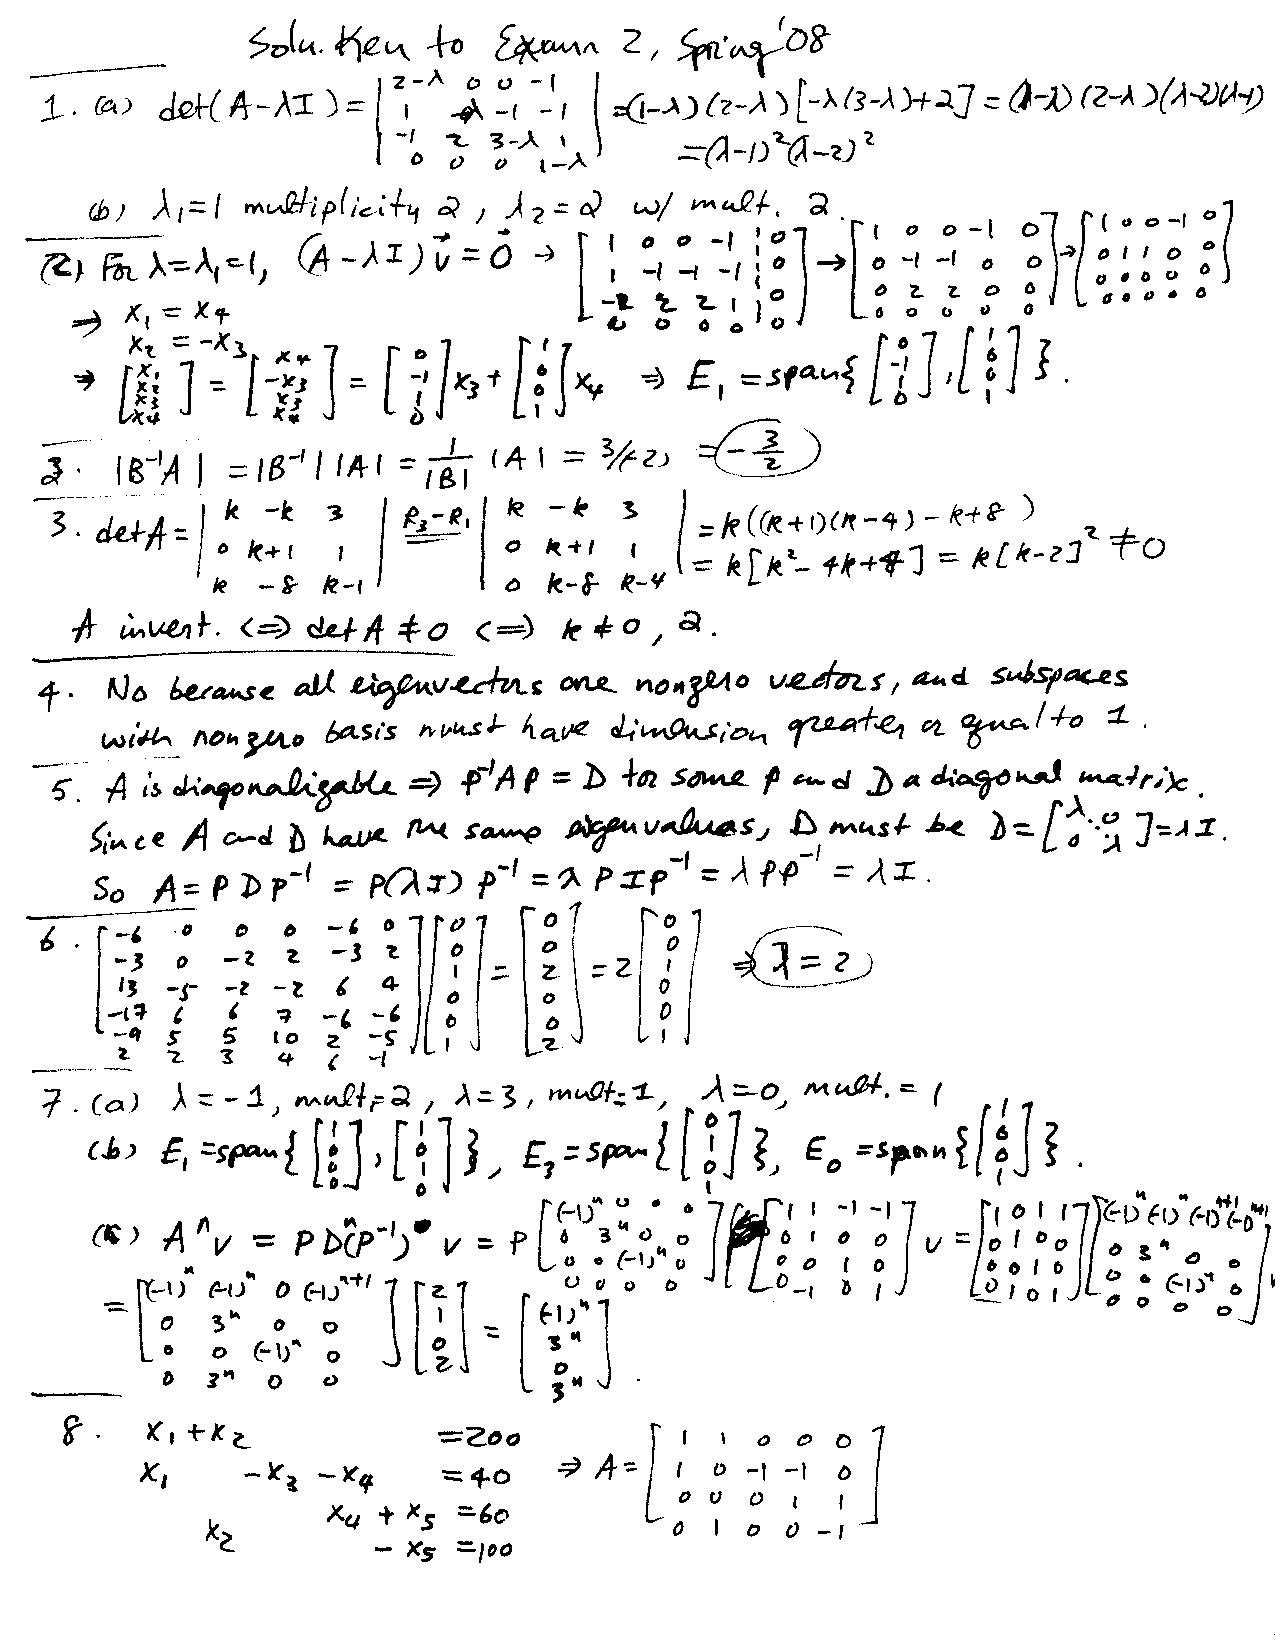 Solu. Key to Exam 2, Spring '08
1. (a) det(A-λI) = | 2-λ 0 0 -1 ; 1 -λ -1 -1 ; -1 2 3-λ 1 ; 0 0 0 1-λ | = (1-λ)(2-λ)[-λ(3-λ)+2] = (1-λ)(2-λ)(λ-2)(λ-1)
= (λ-1)²(λ-2)²
(b) λ₁=1 multiplicity 2, λ₂=2 w/ mult. 2.
(2) For λ=λ₁=1, (A-λI)v⃗ = 0⃗ → [ 1 0 0 -1 0 ; 1 -1 -1 -1 0 ; -2 2 2 1 0 ; 0 0 0 0 0 ] → [ 1 0 0 -1 0 ; 0 -1 -1 0 0 ; 0 2 2 0 0 ; 0 0 0 0 0 ] → [ 1 0 0 -1 0 ; 0 1 1 0 0 ; 0 0 0 0 0 ; 0 0 0 0 0 ]
⇒ x₁ = x₄
x₂ = -x₃
→ [ x₁ ; x₂ ; x₃ ; x₄ ] = [ x₄ ; -x₃ ; x₃ ; x₄ ] = [ 0 ; -1 ; 1 ; 0 ] x₃ + [ 1 ; 0 ; 0 ; 1 ] x₄ ⇒ E₁ = span{ [ 0 ; -1 ; 1 ; 0 ], [ 1 ; 0 ; 0 ; 1 ] }.
2. |B⁻¹A| = |B⁻¹||A| = 1/|B| |A| = 3/(-2) = -3/2
3. det A = | k -k 3 ; 0 k+1 1 ; k -8 k-1 | R₃-R₁ | k -k 3 ; 0 k+1 1 ; 0 k-8 k-4 | = k((k+1)(k-4)-k+8)
= k[k²-4k+4] = k[k-2]² ≠ 0
A invert. ⇔ det A ≠ 0 ⇔ k ≠ 0, 2.
4. No because all eigenvectors are nonzero vectors, and subspaces
with nonzero basis must have dimension greater or equal to 1.
5. A is diagonalizable ⇒ P⁻¹AP = D for some P and D a diagonal matrix.
Since A and D have the same eigenvalues, D must be D = [ λ 0 ; ⋱ ; 0 λ ] = λI.
So A = PDP⁻¹ = P(λI)P⁻¹ = λPIP⁻¹ = λPP⁻¹ = λI.
6. [ -6 0 0 0 -6 0 ; -3 0 -2 2 -3 2 ; 13 -5 -2 -2 6 4 ; -17 6 6 7 -6 -6 ; -9 5 5 10 2 -5 ; 2 2 3 4 6 -1 ] [ 0 ; 0 ; 1 ; 0 ; 0 ; 1 ] = [ 0 ; 0 ; 2 ; 0 ; 0 ; 2 ] = 2 [ 0 ; 0 ; 1 ; 0 ; 0 ; 1 ] ⇒ λ = 2
7. (a) λ = -1, mult = 2, λ = 3, mult = 1, λ = 0, mult. = 1
(b) E₁ = span{ [ 1 ; 0 ; 0 ; 0 ], [ 1 ; 0 ; 1 ; 0 ] }, E₃ = span{ [ 0 ; 1 ; 0 ; 1 ] }, E₀ = span{ [ 1 ; 0 ; 0 ; 1 ] }.
(c) Aⁿv = PDⁿ(P⁻¹) v = P [ (-1)ⁿ 0 0 0 ; 0 3ⁿ 0 0 ; 0 0 (-1)ⁿ 0 ; 0 0 0 0 ] [ 1 1 -1 -1 ; 0 1 0 0 ; 0 0 1 0 ; 0 -1 0 1 ] v = [ 1 0 1 1 ; 0 1 0 0 ; 0 0 1 0 ; 0 1 0 1 ] [ (-1)ⁿ (-1)ⁿ (-1)ⁿ⁺¹ (-1)ⁿ⁺¹ ; 0 3ⁿ 0 0 ; 0 0 (-1)ⁿ 0 ; 0 0 0 0 ] v
= [ (-1)ⁿ (-1)ⁿ 0 (-1)ⁿ⁺¹ ; 0 3ⁿ 0 0 ; 0 0 (-1)ⁿ 0 ; 0 3ⁿ 0 0 ] [ 2 ; 1 ; 0 ; 2 ] = [ (-1)ⁿ ; 3ⁿ ; 0 ; 3ⁿ ].
8. x₁ + x₂ = 200
x₁ - x₃ - x₄ = 40 ⇒ A = [ 1 1 0 0 0 ; 1 0 -1 -1 0 ; 0 0 0 1 1 ; 0 1 0 0 -1 ]
x₄ + x₅ = 60
x₂ - x₅ = 100